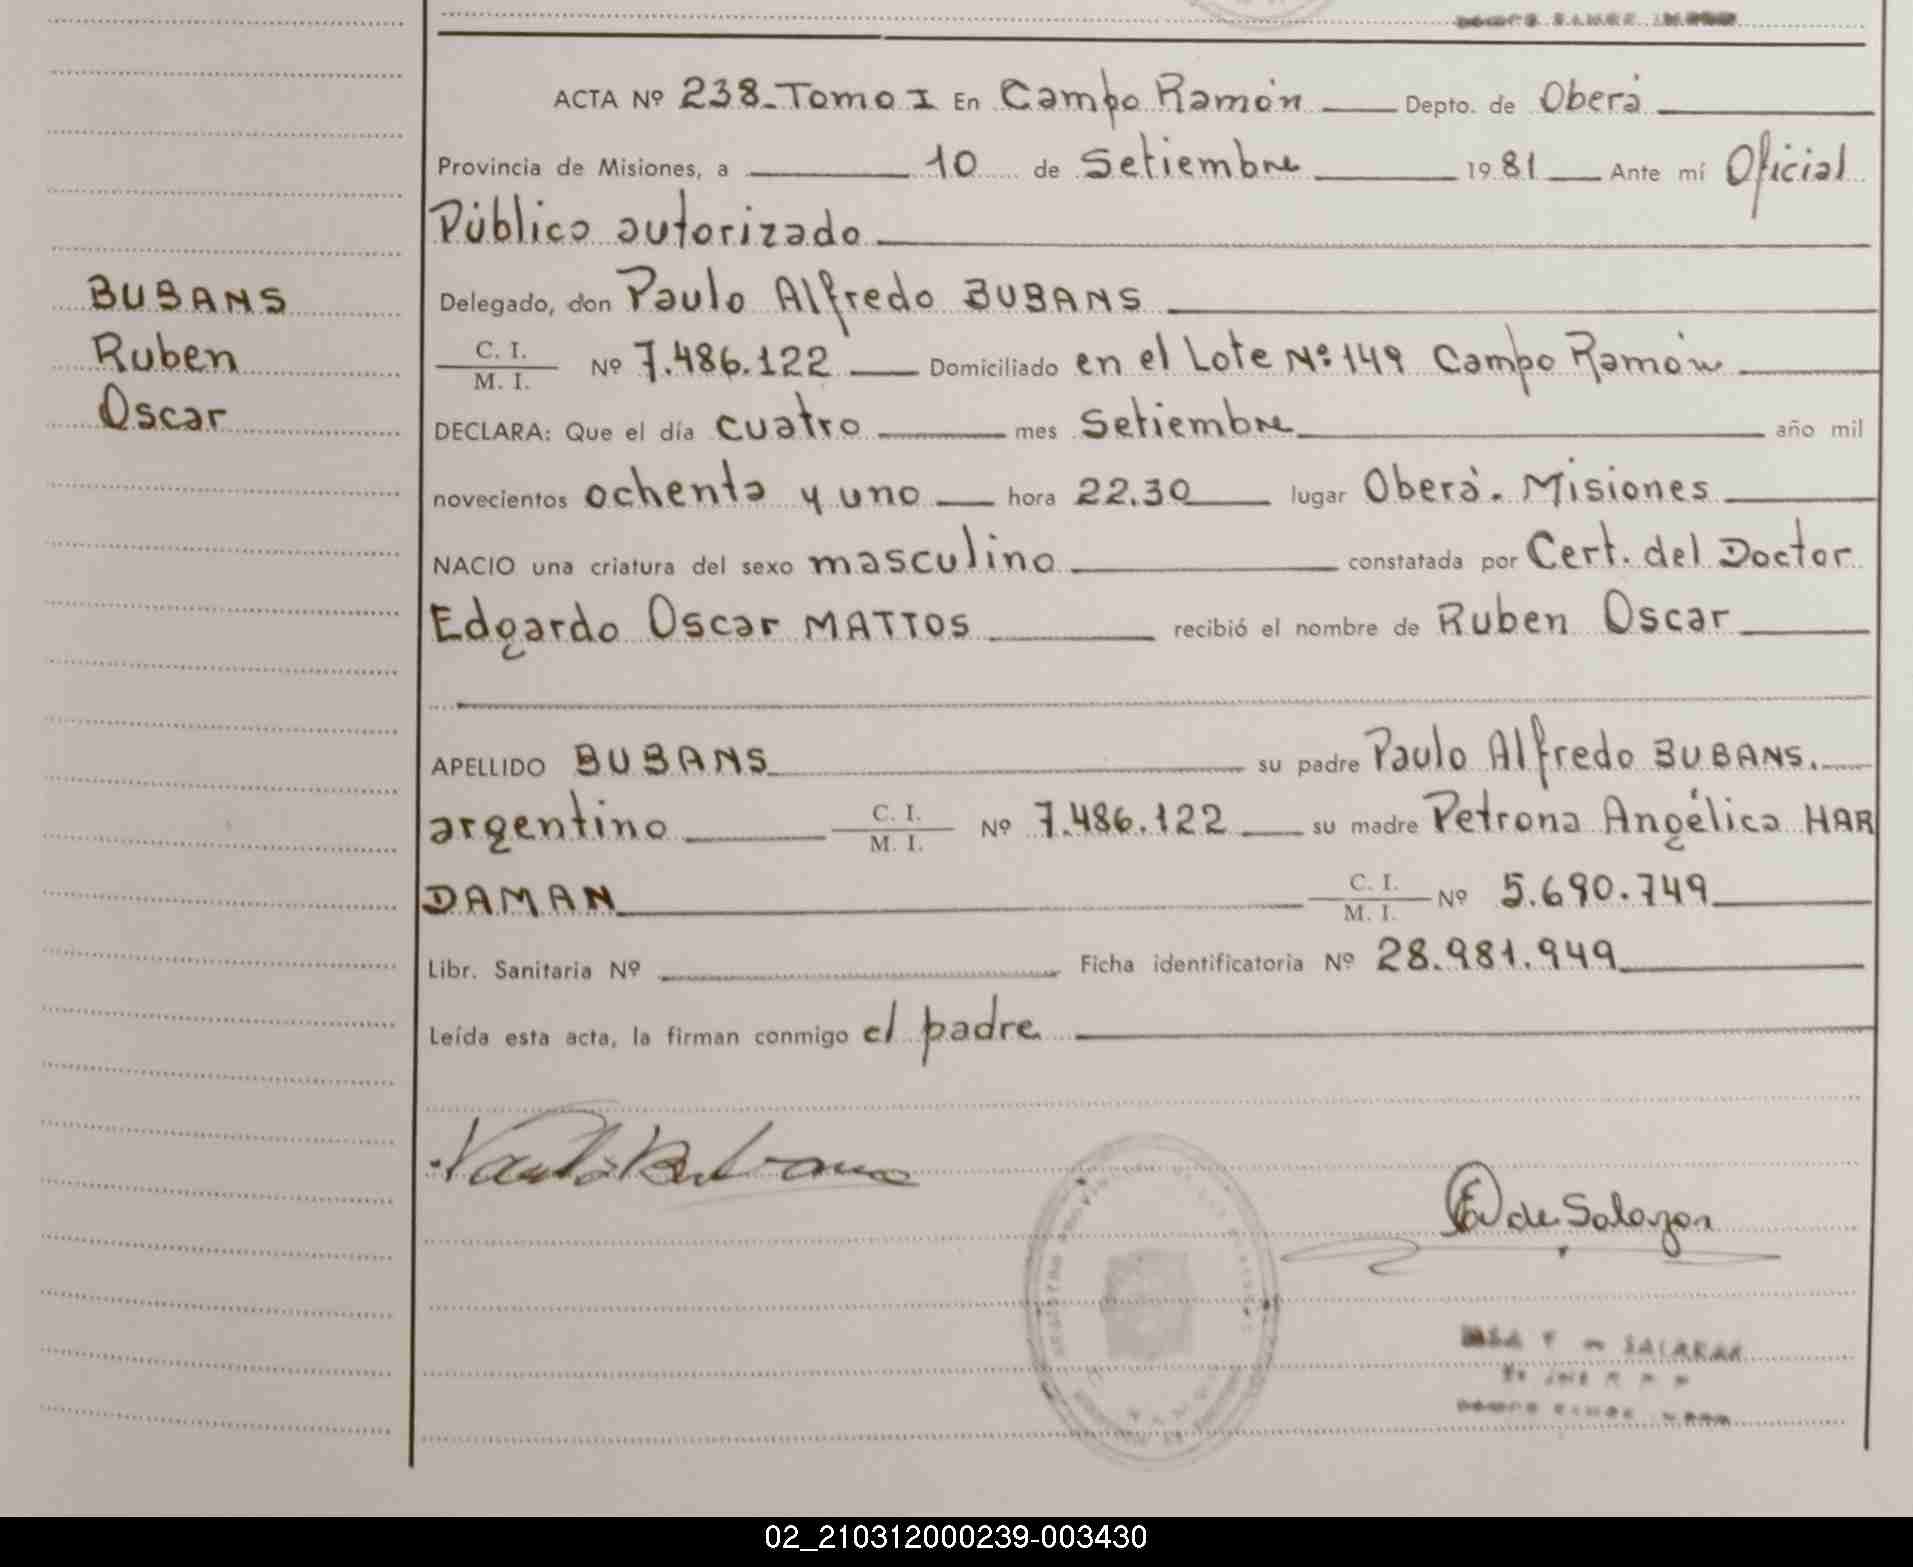 ACTA Nº 238 - Tomo I En Campo Ramón Depto. de Oberá
Provincia de Misiones, a 10 de Setiembre 1981 Ante mí Oficial
Público autorizado
BUBANS
Delegado, don Paulo Alfredo BUBANS
Ruben
C. I.
M. I. Nº 7.486.122 Domiciliado en el Lote Nº 149 Campo Ramón
Oscar
DECLARA: Que el día cuatro mes Setiembre año mil
novecientos ochenta y uno hora 22.30 lugar Oberá. Misiones
NACIO una criatura del sexo masculino constatada por Cert. del Doctor
Edgardo Oscar MATTOS recibió el nombre de Ruben Oscar
APELLIDO BUBANS su padre Paulo Alfredo BUBANS.
argentino C. I. M. I. Nº 7.486.122 su madre Petrona Angélica HAR
DAMAN C. I. M. I. Nº 5.690.749
Libr. Sanitaria Nº Ficha identificatoria Nº 28.981.949
Leída esta acta, la firman conmigo el padre
Paulo Bubans
de Salazar
SALAZAR
02_210312000239-003430